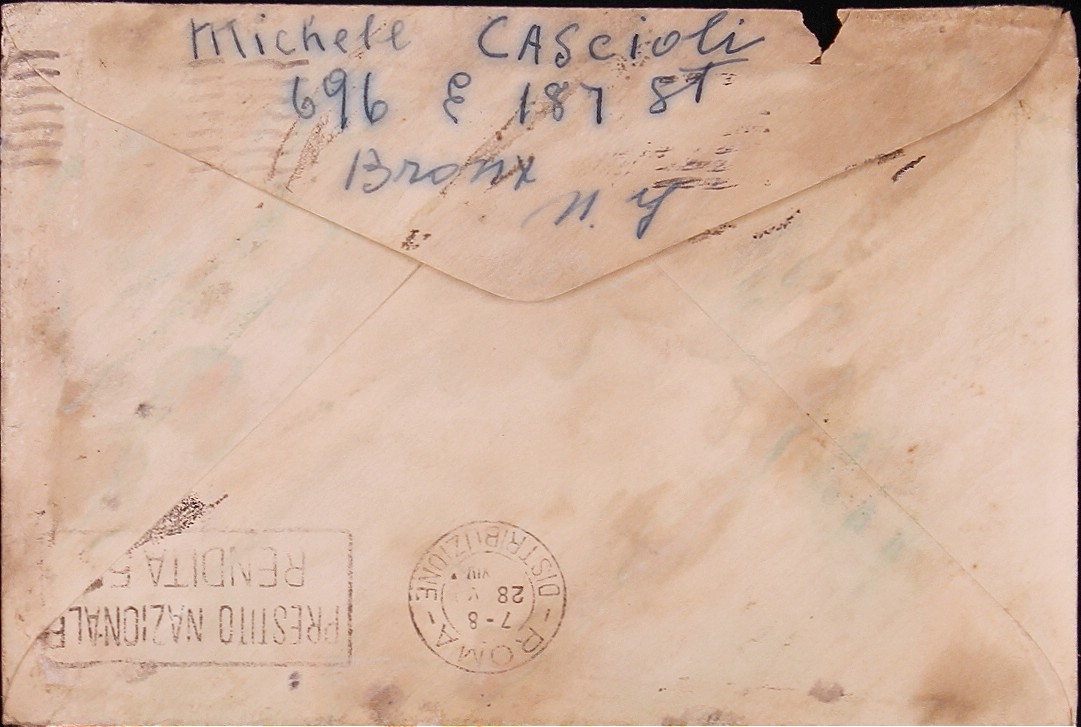 Michele CAScioli
696 E 187 ST
Bronx
N. Y
PRESTITO NAZIONALE
RENDITA 5
ROMA - DISTRIBUZIONE -
7-8
28